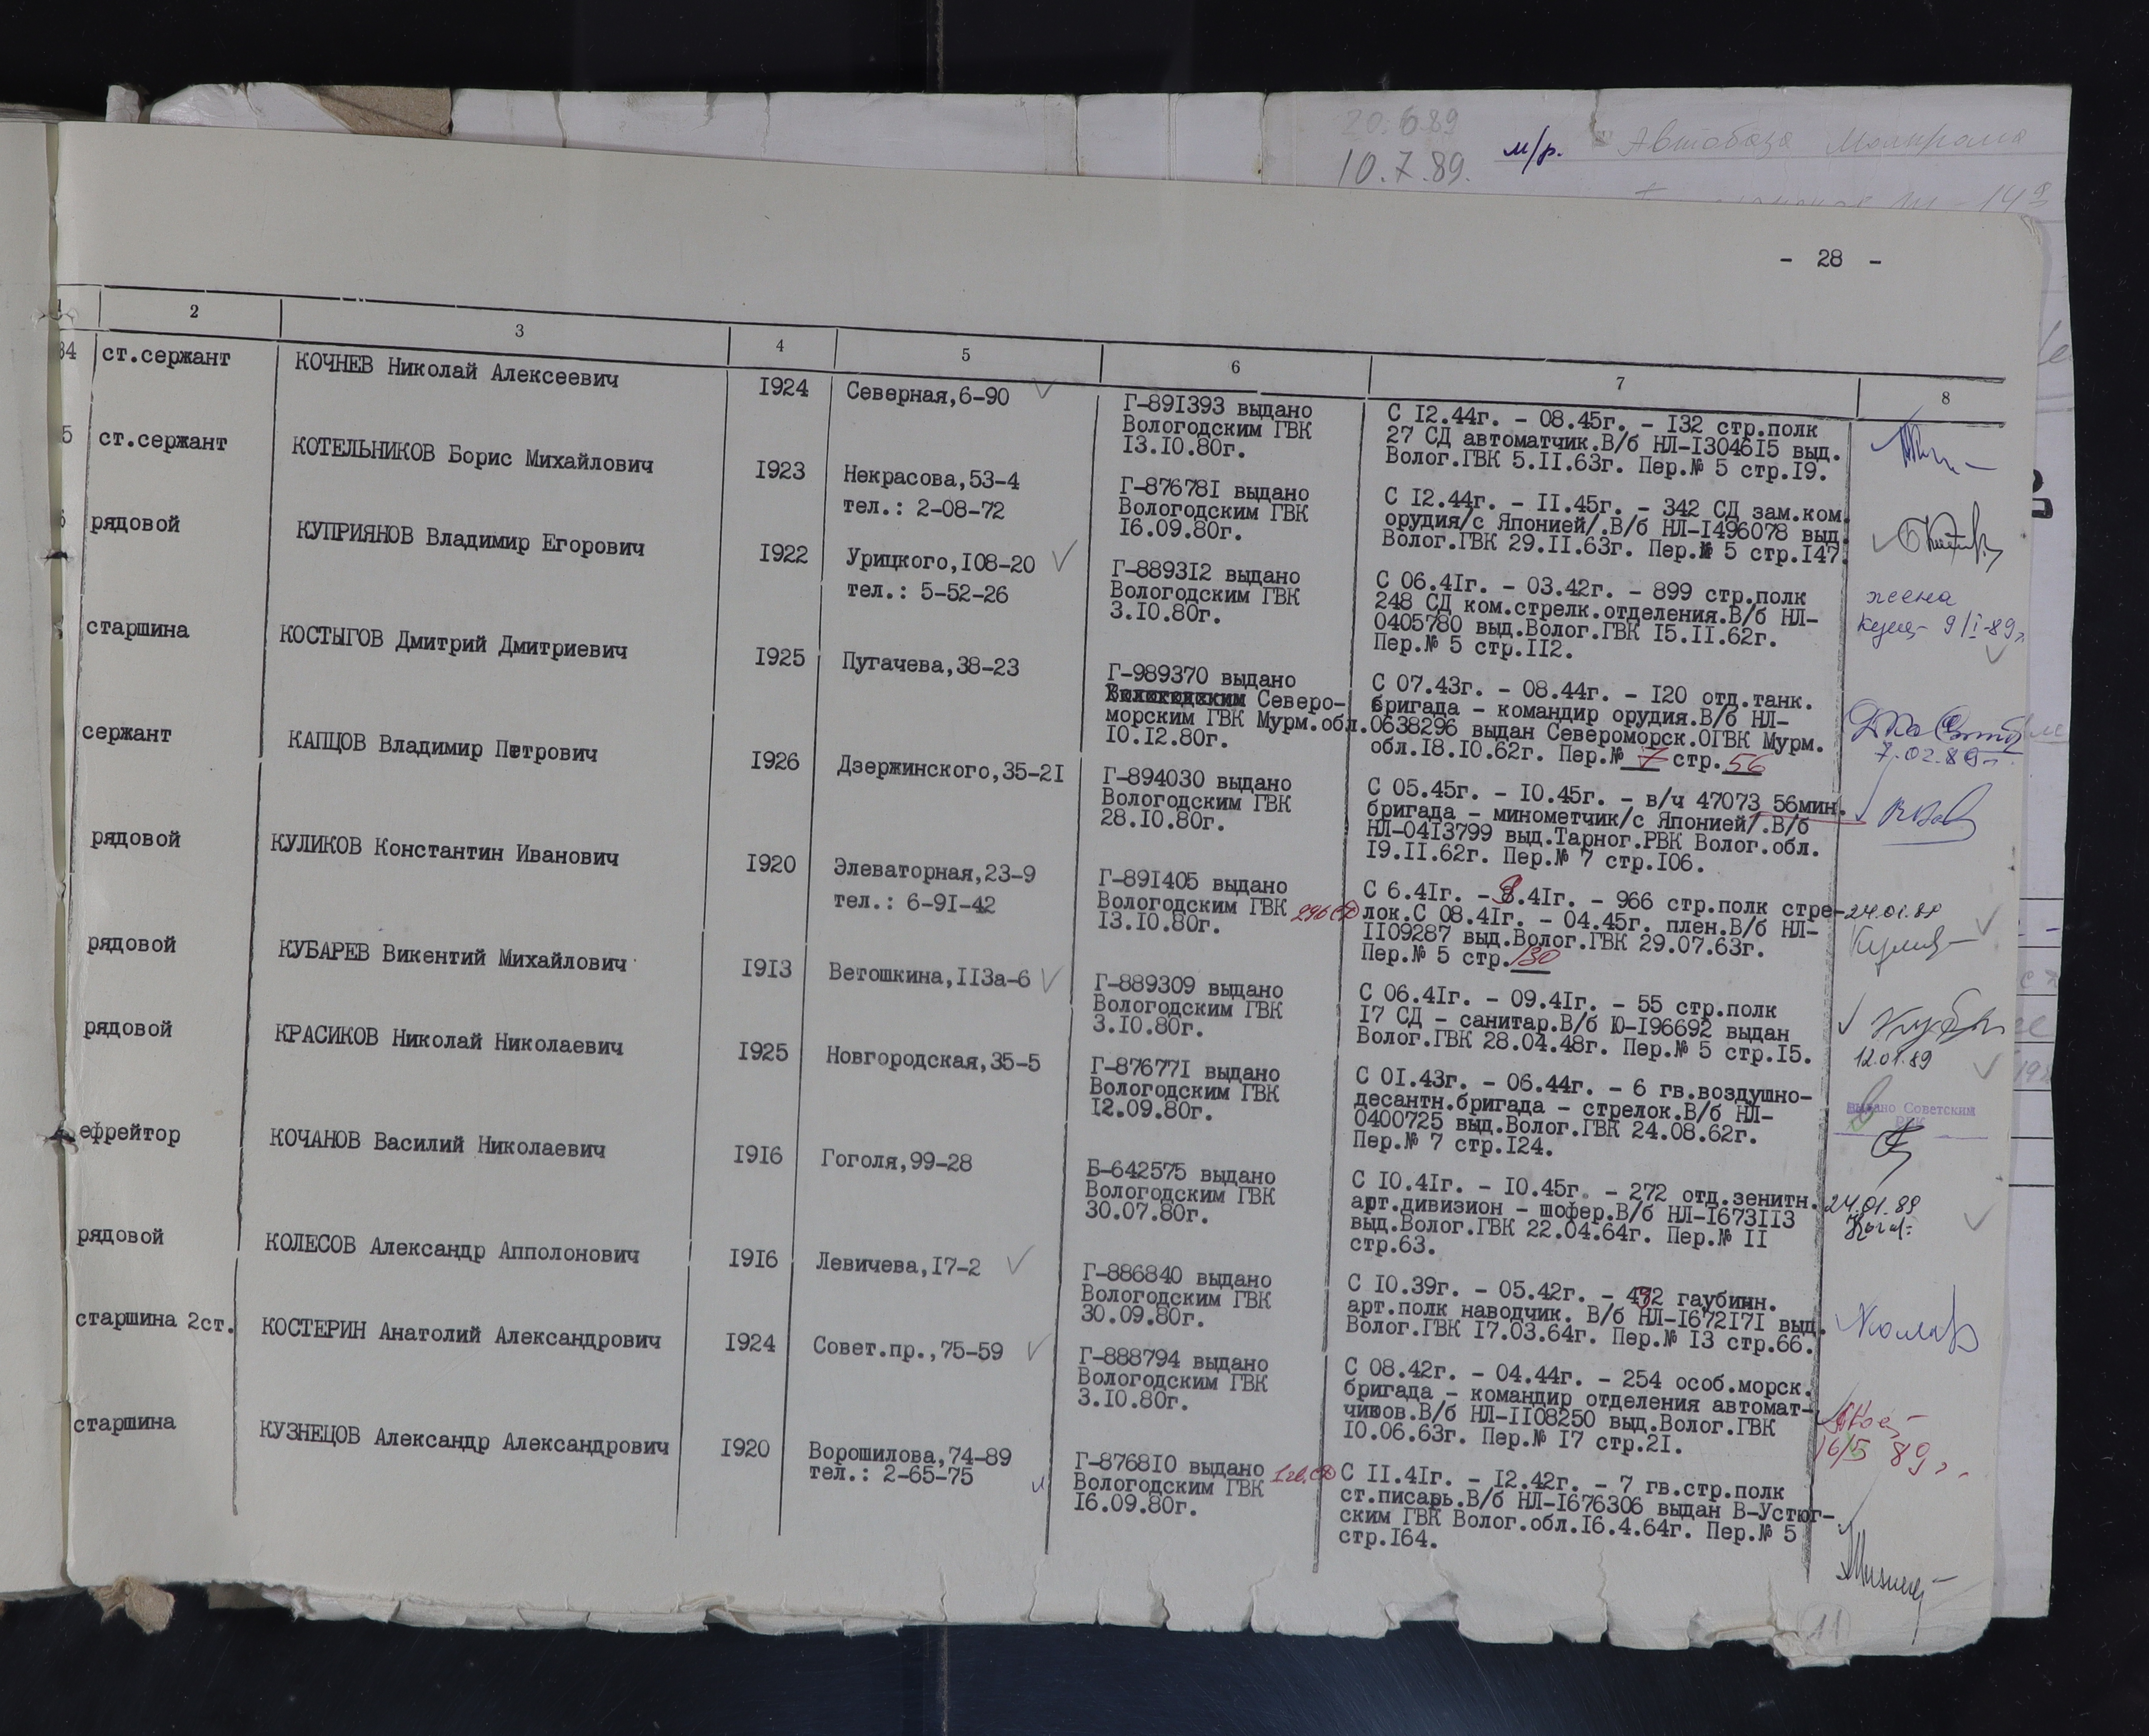 20.6.89
10.7.89. м/р. Автобаза
- 28 -
2 3 4 5 6 7 8
34 ст.сержант КОЧНЕВ Николай Алексеевич I924 Северная,6-90 ✓
Г-89I393 выдано
Вологодским ГВК
I3.I0.80г.
С I2.44г. - 08.45г. - I32 стр.полк
27 СД автоматчик.В/б НЛ-I3046I5 выд.
Волог.ГВК 5.II.63г. Пер.№ 5 стр.I9.
5 ст.сержант КОТЕЛЬНИКОВ Борис Михайлович I923 Некрасова,53-4
тел.: 2-08-72
Г-87678I выдано
Вологодским ГВК
I6.09.80г.
С I2.44г. - II.45г. - 342 СД зам.ком.
орудия/с Японией/.В/б НЛ-I496078 выд.
Волог.ГВК 29.II.63г. Пер.№ 5 стр.I47.
6 рядовой КУПРИЯНОВ Владимир Егорович I922 Урицкого,I08-20 ✓
тел.: 5-52-26
Г-8893I2 выдано
Вологодским ГВК
3.I0.80г.
С 06.4Iг. - 03.42г. - 899 стр.полк
248 СД ком.стрелк.отделения.В/б НЛ-
0405780 выд.Волог.ГВК I5.II.62г.
Пер.№ 5 стр.II2.
жена
9/I-89г
старшина КОСТЫГОВ Дмитрий Дмитриевич I925 Пугачева,38-23
Г-989370 выдано
Вологодским Северо-
морским ГВК Мурм.обл.
I0.I2.80г.
С 07.43г. - 08.44г. - I20 отд.танк.
бригада - командир орудия.В/б НЛ-
0638296 выдан Североморск.ОГВК Мурм.
обл.I8.I0.62г. Пер.№ 7 стр.56
7.02.89г
сержант КАПЦОВ Владимир Петрович I926 Дзержинского,35-2I
Г-894030 выдано
Вологодским ГВК
28.I0.80г.
С 05.45г. - I0.45г. - в/ч 47073 56мин.
бригада - минометчик/с Японией/.В/б
НЛ-04I3799 выд.Тарног.РВК Волог.обл.
I9.II.62г. Пер.№ 7 стр.I06.
рядовой КУЛИКОВ Константин Иванович I920 Элеваторная,23-9
тел.: 6-9I-42
Г-89I405 выдано
Вологодским ГВК 296 СД
I3.I0.80г.
С 6.4Iг. - 8.4Iг. - 966 стр.полк стре-
лок.С 08.4Iг. - 04.45г. плен.В/б НЛ-
II09287 выд.Волог.ГВК 29.07.63г.
Пер.№ 5 стр.130
24.01.89
рядовой КУБАРЕВ Викентий Михайлович I9I3 Ветошкина,II3а-6 ✓
Г-889309 выдано
Вологодским ГВК
3.I0.80г.
С 06.4Iг. - 09.4Iг. - 55 стр.полк
I7 СД - санитар.В/б Ю-I96692 выдан
Волог.ГВК 28.04.48г. Пер.№ 5 стр.I5.
12.01.89
рядовой КРАСИКОВ Николай Николаевич I925 Новгородская,35-5
Г-87677I выдано
Вологодским ГВК
I2.09.80г.
С 0I.43г. - 06.44г. - 6 гв.воздушно-
десантн.бригада - стрелок.В/б НЛ-
0400725 выд.Волог.ГВК 24.08.62г.
Пер.№ 7 стр.I24.
Выдано Советским
РВК
ефрейтор КОЧАНОВ Василий Николаевич I9I6 Гоголя,99-28
Б-642575 выдано
Вологодским ГВК
30.07.80г.
С I0.4Iг. - I0.45г. - 272 отд.зенитн.
арт.дивизион - шофер.В/б НЛ-I673II3
выд.Волог.ГВК 22.04.64г. Пер.№ II
стр.63.
24.01.89
рядовой КОЛЕСОВ Александр Апполонович I9I6 Левичева,I7-2 ✓
Г-886840 выдано
Вологодским ГВК
30.09.80г.
С I0.39г. - 05.42г. - 492 гаубичн.
арт.полк наводчик. В/б НЛ-I672I7I выд.
Волог.ГВК I7.03.64г. Пер.№ I3 стр.66.
старшина 2ст. КОСТЕРИН Анатолий Александрович I924 Совет.пр.,75-59 ✓
Г-888794 выдано
Вологодским ГВК
3.I0.80г.
С 08.42г. - 04.44г. - 254 особ.морск.
бригада - командир отделения автомат-
чиков.В/б НЛ-II08250 выд.Волог.ГВК
I0.06.63г. Пер.№ I7 стр.2I.
16/5 89г.
старшина КУЗНЕЦОВ Александр Александрович I920 Ворошилова,74-89
тел.: 2-65-75
Г-8768I0 выдано 1гв.СД
Вологодским ГВК
I6.09.80г.
С II.4Iг. - I2.42г. - 7 гв.стр.полк
ст.писарь.В/б НЛ-I676306 выдан В-Устюг-
ским ГВК Волог.обл.I6.4.64г. Пер.№ 5
стр.I64.
11